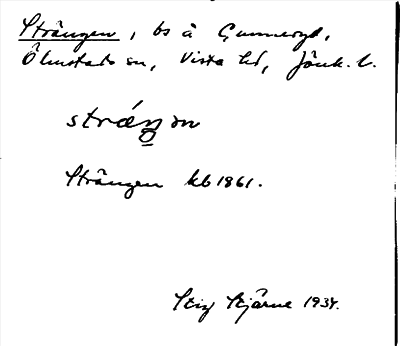 Strängen, bs å Gunneryd,
Ölmstads sn, Vista hd, Jönk. l.
Strängen kb 1861.
Stig Stjärne 1934.